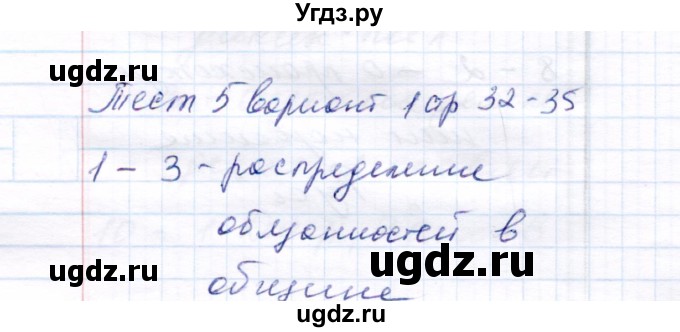 Угдз.ру
ugdz.ru ugdz.ru ugdz.ru
Тест 5 вариант 1 стр 32-35
1 - 3 - распределение
обязанностей в
ugdz.ru ugdz.ru
общине
Угдз.ру